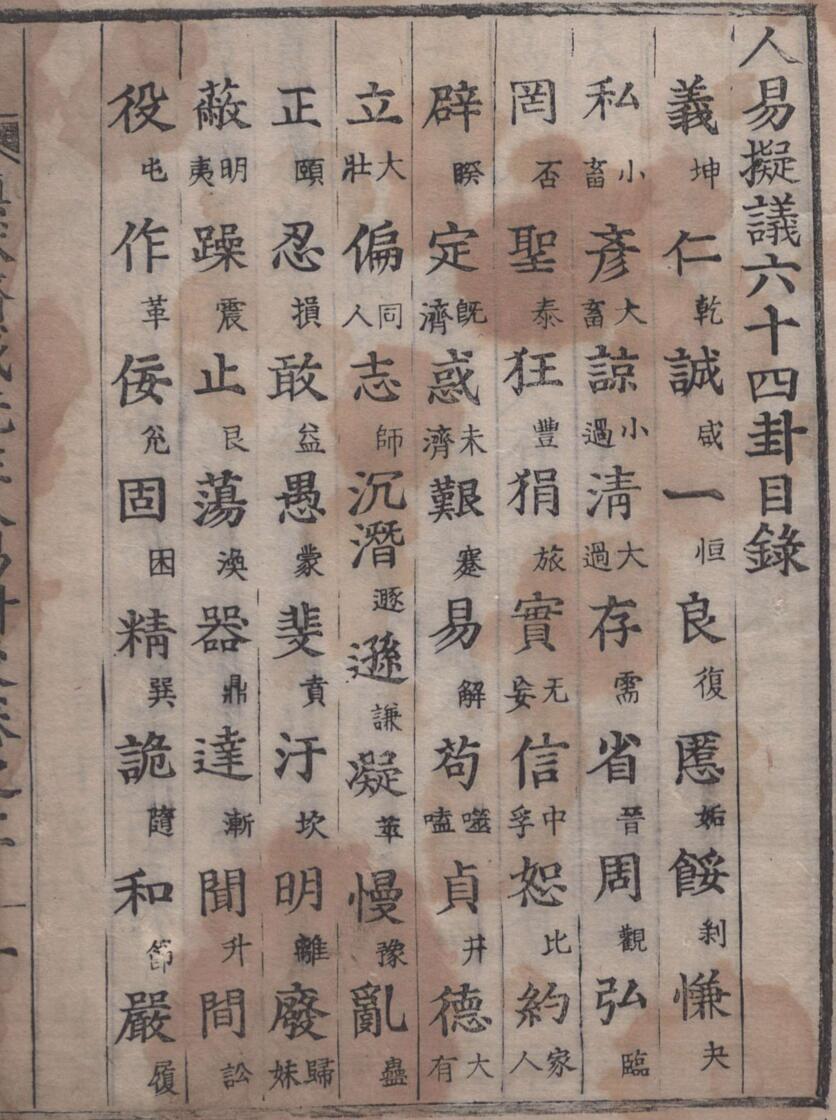 人易擬議六十四卦目錄
義坤仁乾誠咸一恒良復慝姤餒剝慊夬
私小畜彥大畜諒小過淸大過存需省晉周觀弘臨
罔否聖泰狂豐狷旅實无妄信中孚恕比約家人
辟睽定旣濟惑未濟艱蹇易解苟噬嗑貞井德大有
立大壯偏同人志師沉潛遯遜謙凝萃慢豫亂蠱
正頤忍損敢益愚蒙斐賁汙坎明離廢歸妹
蔽明夷躁震止艮蕩渙器鼎達漸聞升間訟
役屯作革佞兊固困精巽詭隨和節嚴履